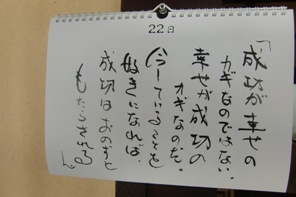 22日
「成功が幸せの
カギなのではない。
幸せが成功の
カギなのだ。
今していることを
好きになれば、
成功はおのずと
もたらされる」